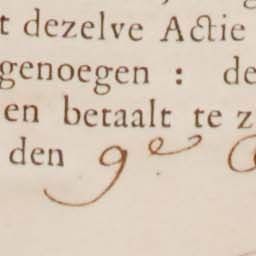 t dezelve Actie
genoegen : de
en betaalt te z
den 9e